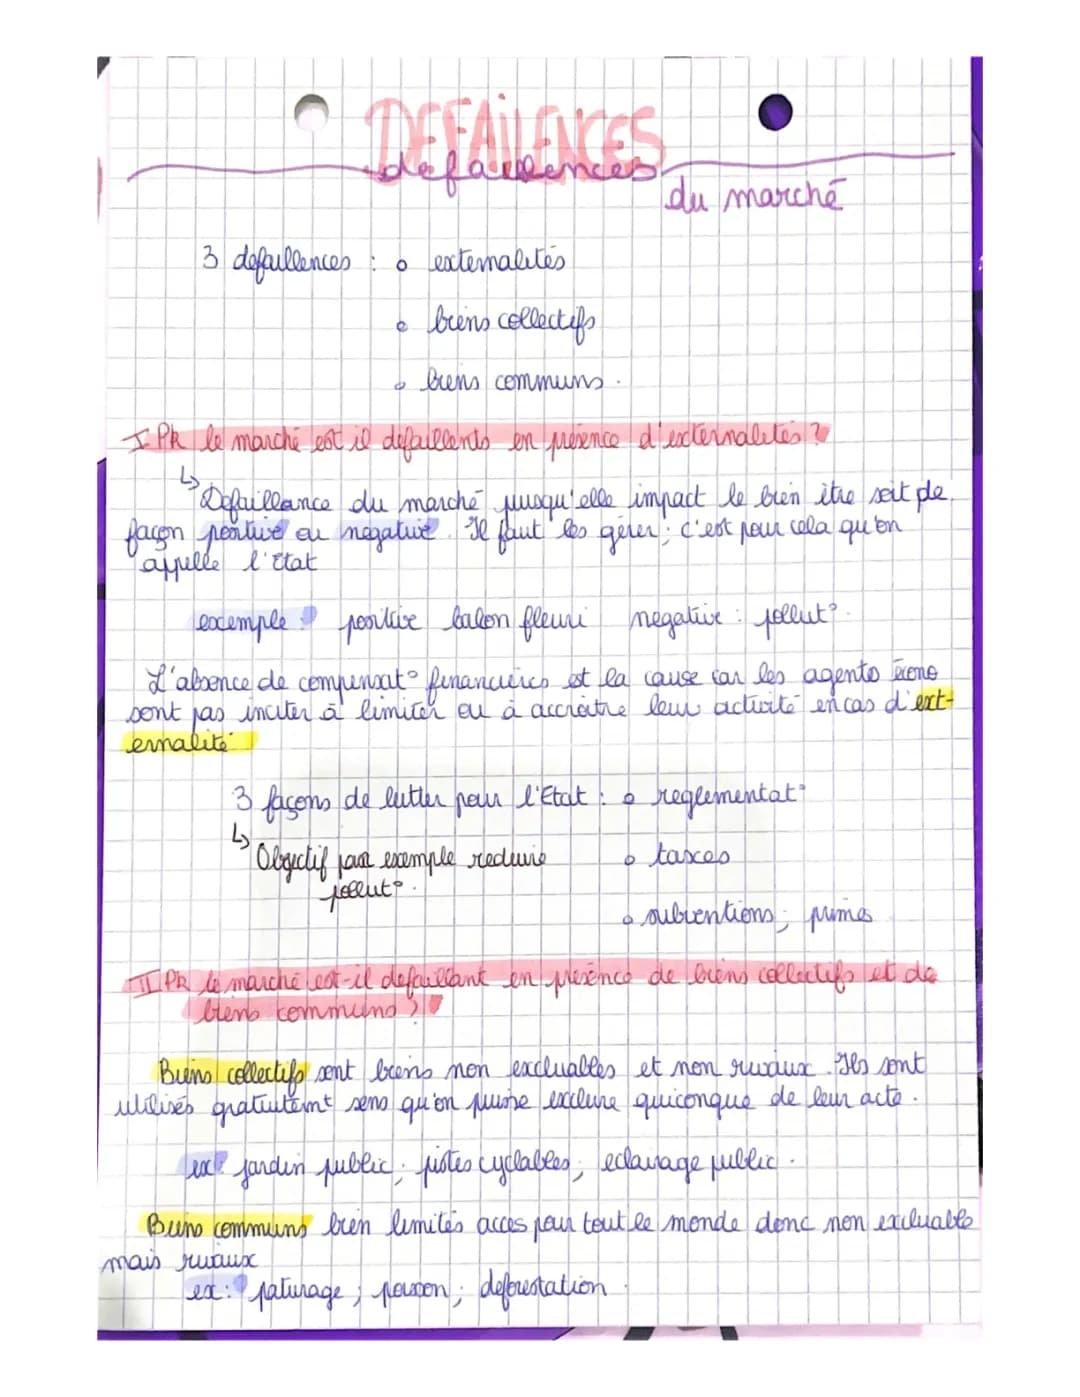 DEFAILENCES
defaillences
du marché
3 defaillences : o externalités
o biens collectifs
o biens communs.
I PK le marché est il défaillents en présence d'externalités ?
↳ Defaillance du marché puisqu'elle impact le bien être soit de
façon positive ou négative. Il faut les gérer; c'est pour cela qu'on
appelle l'Etat
exemple : positive balcon fleuri negative : pollut°.
L'absence de compensat° financières est la cause car les agents écono
sont pas inciter à limiter ou à accroître leur activité en cas d'ext-
ernalité
3 façons de lutter pour l'Etat : o reglementat°
↳ Objectif par exemple reduire o taxes
pollut°.
o subventions; primes
II PK le marché est-il defaillant en présence de biens collectifs et de
biens communs ?
Biens collectifs sont biens non excluables et non rivaux. Ils sont
utilisés gratuitemt sans qu'on puisse exclure quiconque de leur acte.
ex : jardin public; pistes cyclables; eclairage public.
Biens communs bien limités acces pour tout le monde donc non excluable
mais rivaux
ex: paturage; poisson; deforestation.